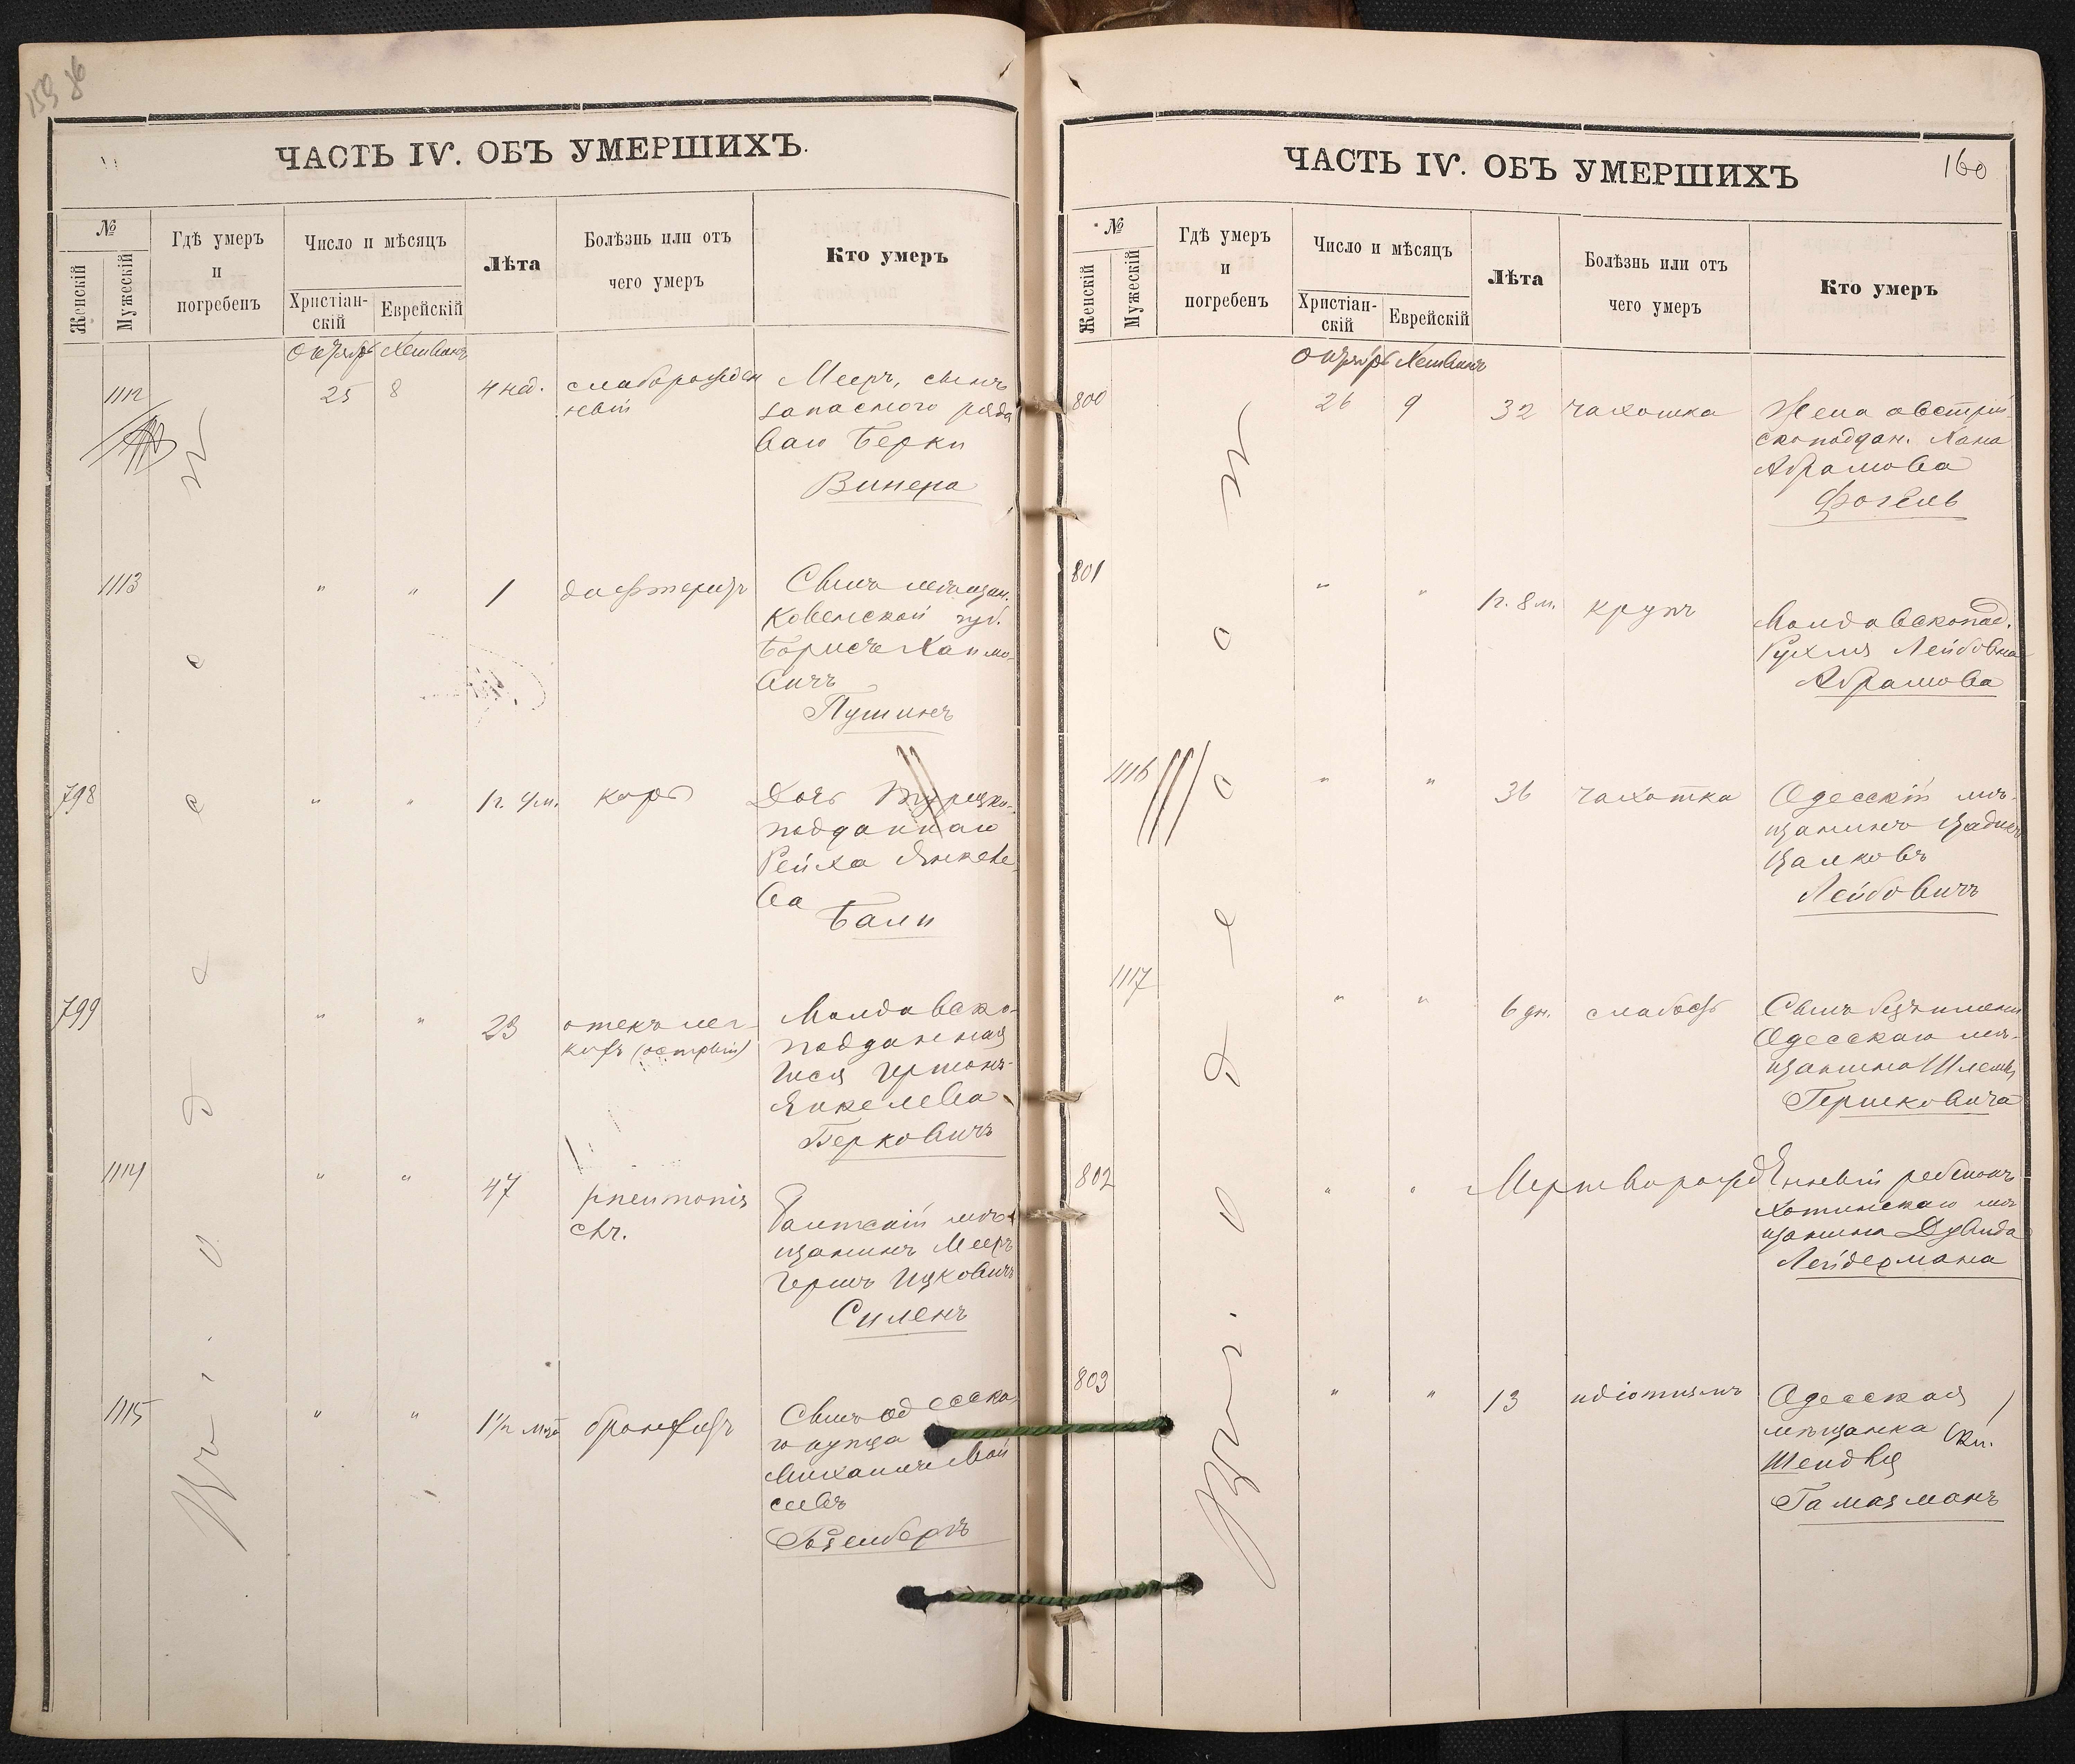 159 86
ЧАСТЬ IV. ОБЪ УМЕРШИХЪ.
№
Женскій
Мужескій
Гдѣ умеръ
и
погребенъ
Число и мѣсяцъ
Христіан-
скій
Еврейскій
Лѣта
Болѣзнь или отъ
чего умеръ
Кто умеръ
Октябрь Хешванъ
1112 25 8 4 нед. слаборожден
ный
Мееръ, сынъ
запаснаго рядо
ваго Берки
Винера
1113 " " 1 дифтеритъ
Сынъ мѣщан.
Ковенской губ.
Борисъ Хаимо-
вичъ
Пушинъ
798 " " 1 г. 4 м. корь
Дочь турецко-
подданнаго
Рейха Янкеле-
ва
Бали
799 " " 23 отекъ лег-
кихъ (острый)
Молдавско-
подданная
Гершонъ-
Янкелева
Берковичъ
1114 " " 47 pneumonia
chr.
мѣ-
щанинъ Мееръ
Гершъ Ицковичъ
Силенъ
1115 " " 1½ мца бронхитъ
Сынъ одесска-
го купца
Михаилъ Мой
сеевъ
Розенбергъ
Въ г. Одессѣ
ЧАСТЬ IV. ОБЪ УМЕРШИХЪ
160
№
Женскій
Мужескій
Гдѣ умеръ
и
погребенъ
Число и мѣсяцъ
Христіан-
скій
Еврейскій
Лѣта
Болѣзнь или отъ
чего умеръ
Кто умеръ
Октябрь Хешванъ
800 26 9 32 чахотка
Жена австрій-
скоподдан. Хана
Абрамова
Фогель
801 " " 1 г. 8 м. крупъ
Молдавскопод.
Рухля Лейбовна
Абрамова
1116 " " 36 чахотка
Одесскій мѣ-
щанинъ Цадикъ
Цалковъ
Лейбовичъ
1117 " " 6 дн. слабость
Сынъ безъ имени
Одесскаго мѣ-
щанина Шлемы
Гершковича
802 " " Мертворожденный ребенокъ
Хотинскаго мѣ
щанина Дувида
Лейдермана
803 " " 13 идіотизмъ
Одесская
мѣщанка
Шендля
Гамазманъ
Въ г. Одессѣ